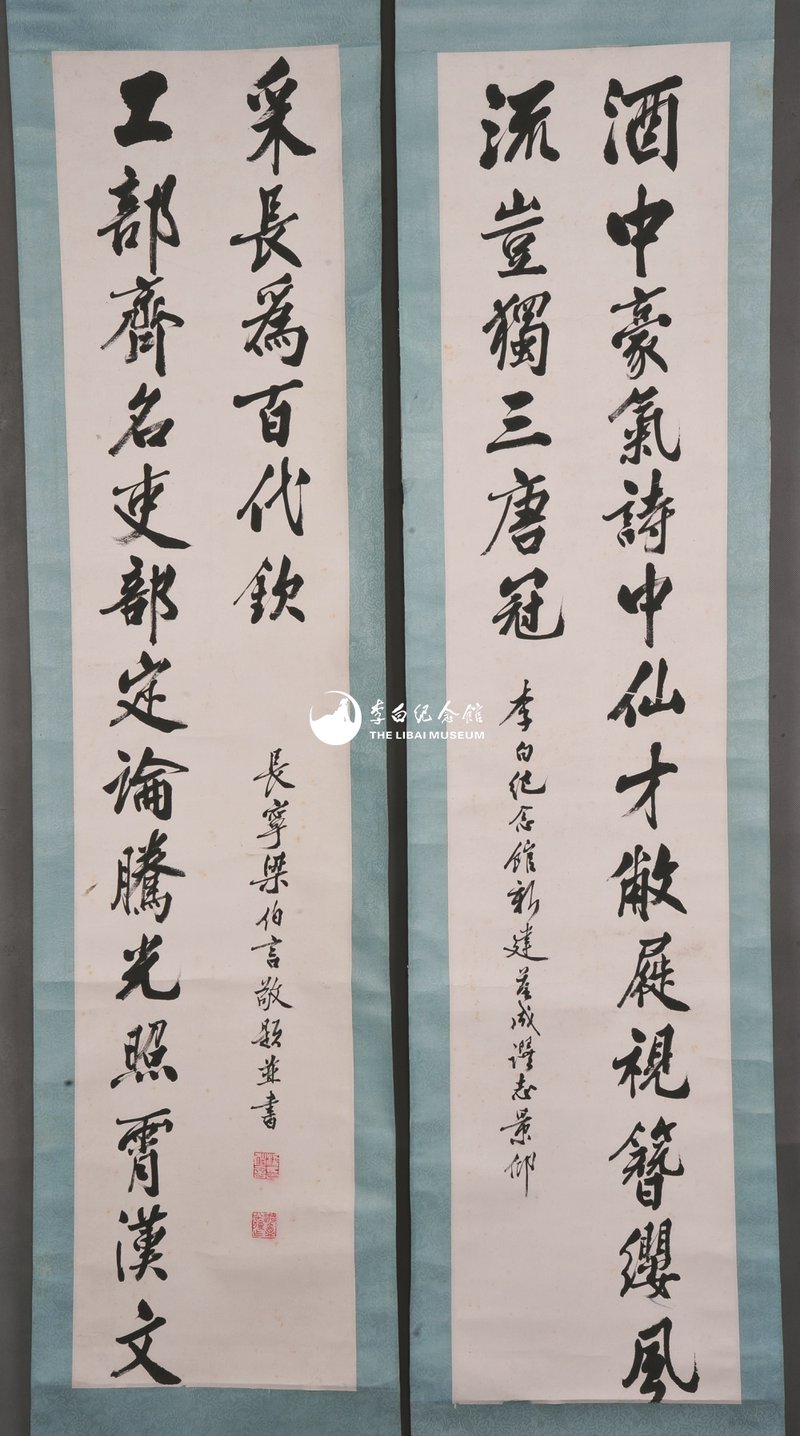 酒中豪氣詩中仙才敝屣視簪纓風
流豈獨三唐冠
李白纪念館新建落成謹志景仰
工部齊名吏部定論騰光照霄漢文
采長爲百代欽
長寧梁伯言敬題並書
李白纪念館
THE LIBAI MUSEUM